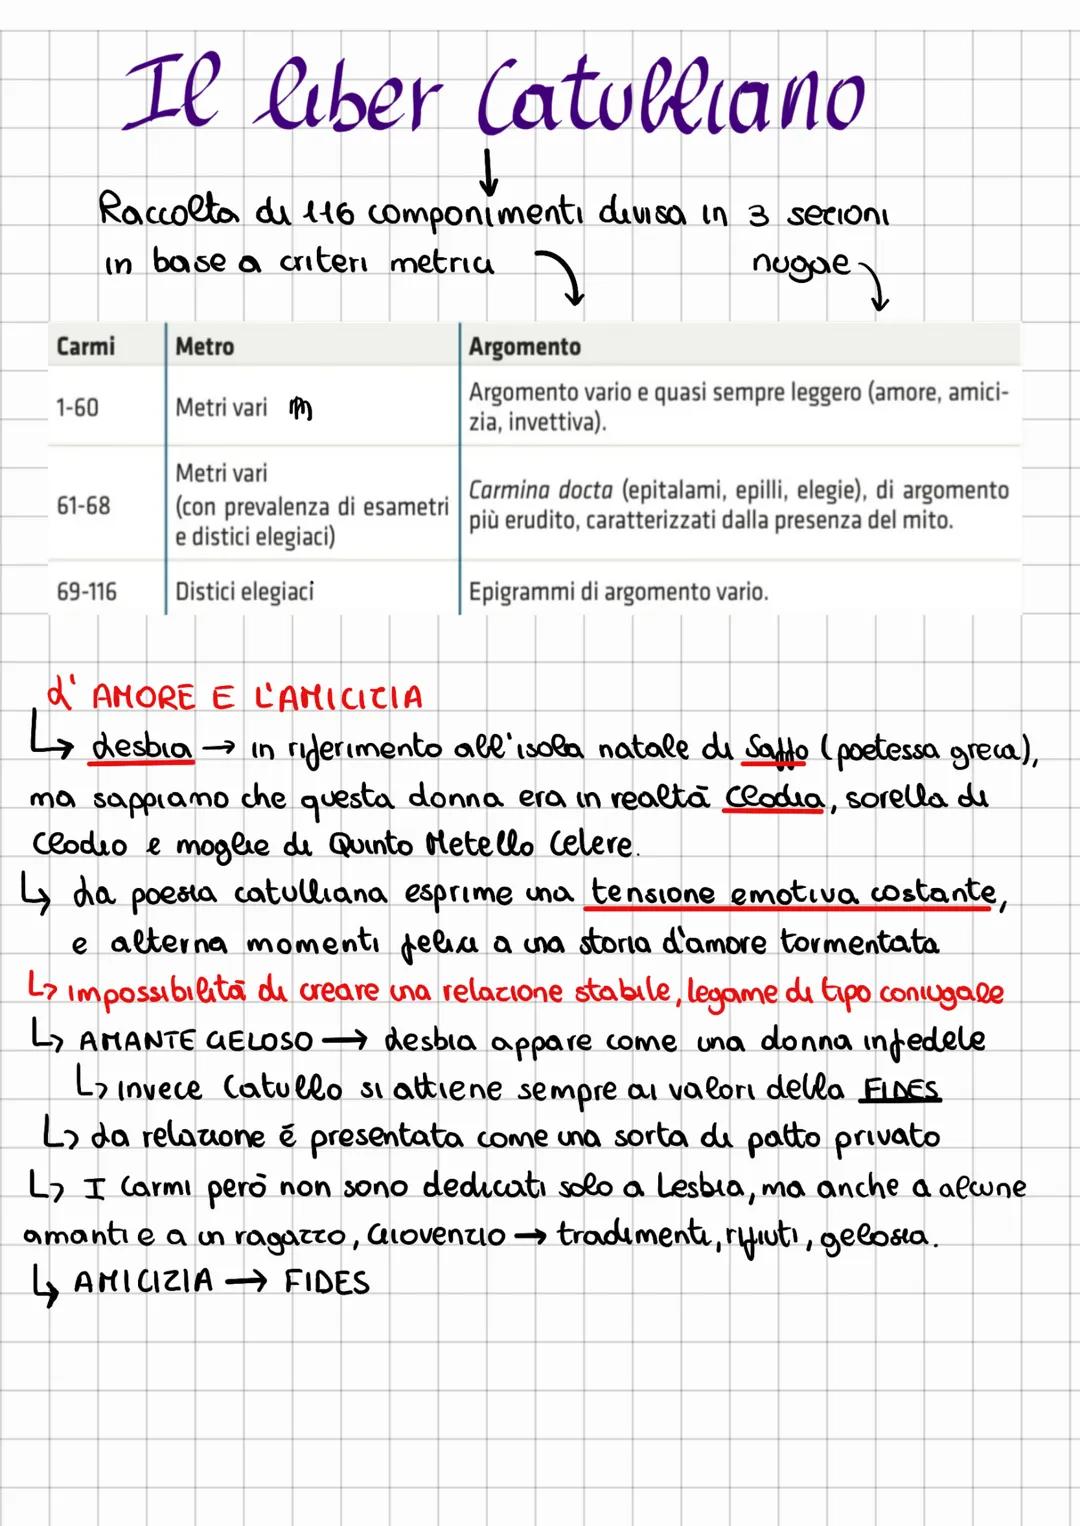 Il liber Catulliano
Raccolta di 116 componimenti divisa in 3 sezioni
in base a criteri metrici
nugae
Carmi Metro Argomento
1-60 Metri vari Argomento vario e quasi sempre leggero (amore, amici-
zia, invettiva).
61-68 Metri vari
(con prevalenza di esametri
e distici elegiaci)
Carmina docta (epitalami, epilli, elegie), di argomento
più erudito, caratterizzati dalla presenza del mito.
69-116 Distici elegiaci Epigrammi di argomento vario.
L' AMORE E L'AMICIZIA
↳ Lesbia → in riferimento all'isola natale di Saffo (poetessa greca),
ma sappiamo che questa donna era in realtà Clodia, sorella di
Clodio e moglie di Quinto Metello Celere.
↳ La poesia catulliana esprime una tensione emotiva costante,
e alterna momenti felici a una storia d'amore tormentata
↳ impossibilità di creare una relazione stabile, legame di tipo coniugale
↳ AMANTE GELOSO → Lesbia appare come una donna infedele
↳ invece Catullo si attiene sempre ai valori della FIDES
↳ La relazione é presentata come una sorta di patto privato
↳ I Carmi però non sono dedicati solo a Lesbia, ma anche a alcune
amanti e a un ragazzo, Giovenzio → tradimenti, rifiuti, gelosia.
↳ AMICIZIA → FIDES